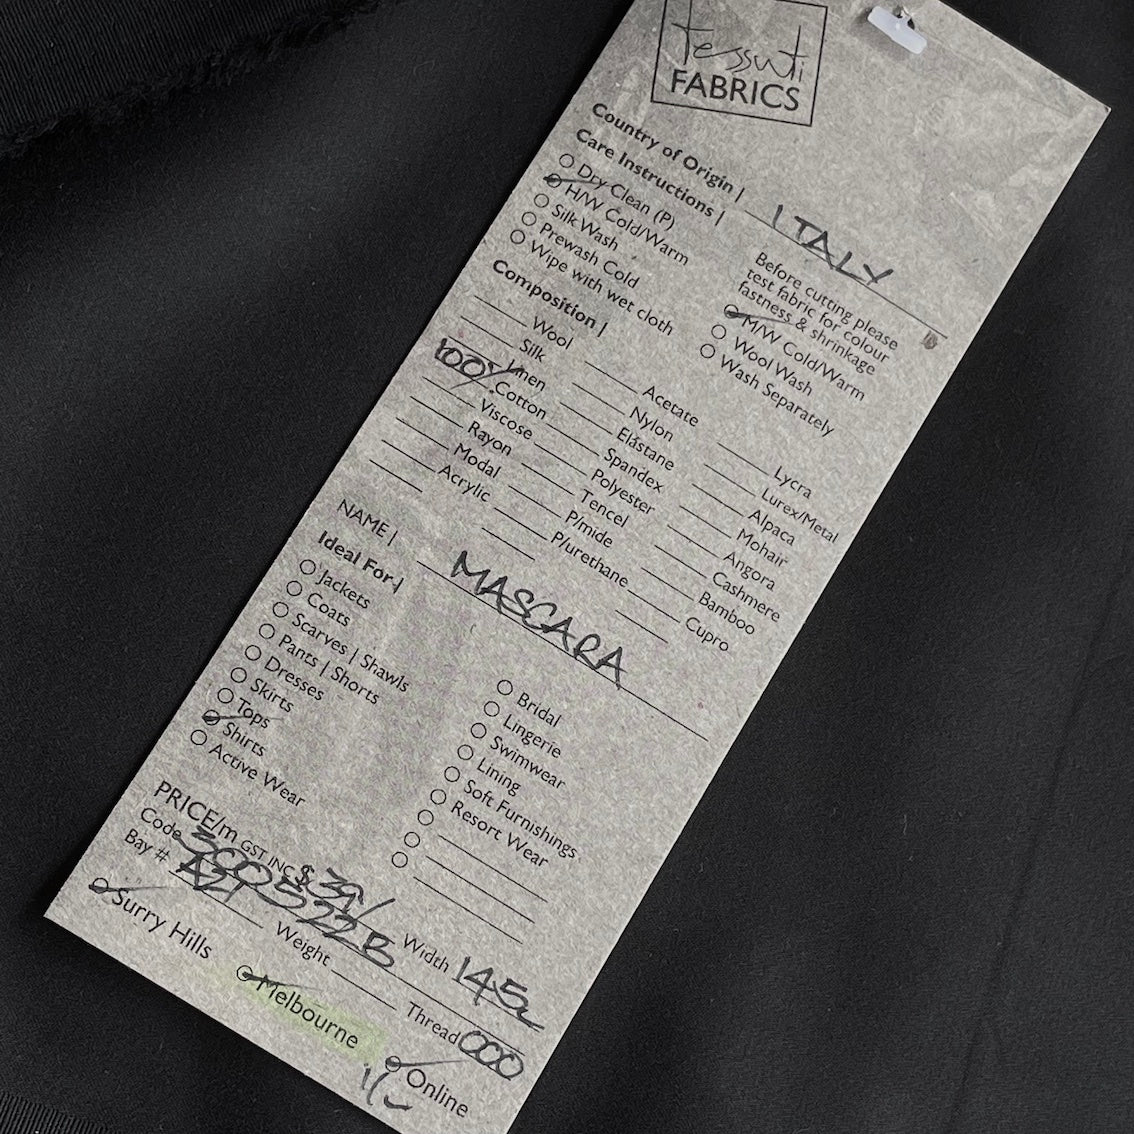 tessuti
FABRICS
Country of Origin | ITALY
Care Instructions |
Dry Clean (P)
H/W Cold/Warm
Silk Wash
Prewash Cold
Wipe with wet cloth
Before cutting please
test fabric for colour
fastness & shrinkage
M/W Cold/Warm
Wool Wash
Wash Separately
Composition |
Wool
Silk
Linen
100% Cotton
Viscose
Rayon
Modal
Acrylic
Acetate
Nylon
Elastane
Spandex
Polyester
Tencel
P/mide
P/urethane
Lycra
Lurex/Metal
Alpaca
Mohair
Angora
Cashmere
Bamboo
Cupro
NAME | MASCARA
Ideal For |
Jackets
Coats
Scarves | Shawls
Pants | Shorts
Dresses
Skirts
Tops
Shirts
Active Wear
Bridal
Lingerie
Swimwear
Lining
Soft Furnishings
Resort Wear
PRICE/m GST INC $39/
Code 300522B Width 145
Bay # AZT Weight Thread 000
Surry Hills Melbourne Online